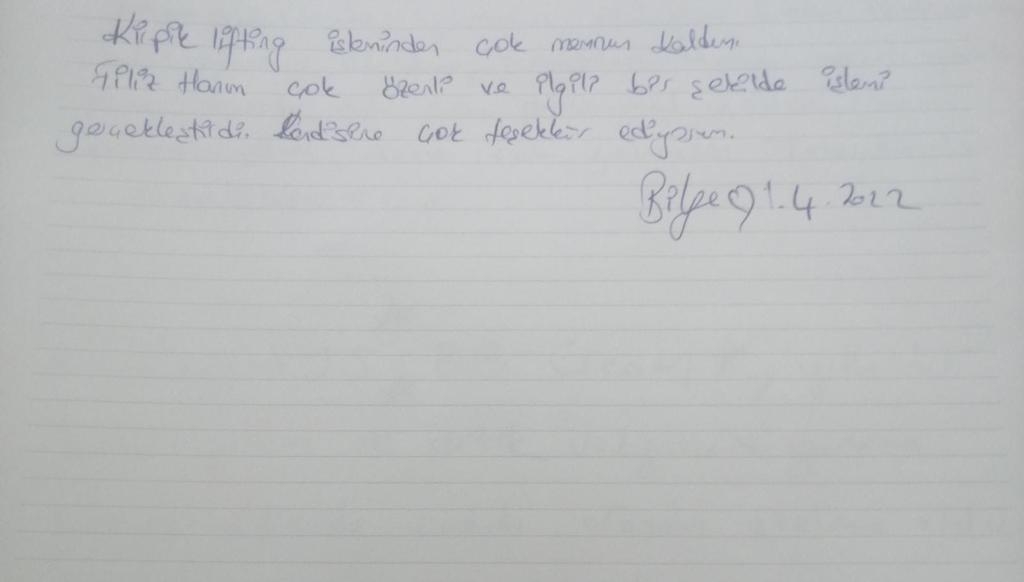 Kirpik lifting işleminden çok memnun kaldım.
Filiz Hanım çok özenli ve ilgili bir şekilde işlemi
gerçekleştirdi. Kendisine çok teşekkür ediyorum.
Bilge ♡ 1.4.2022